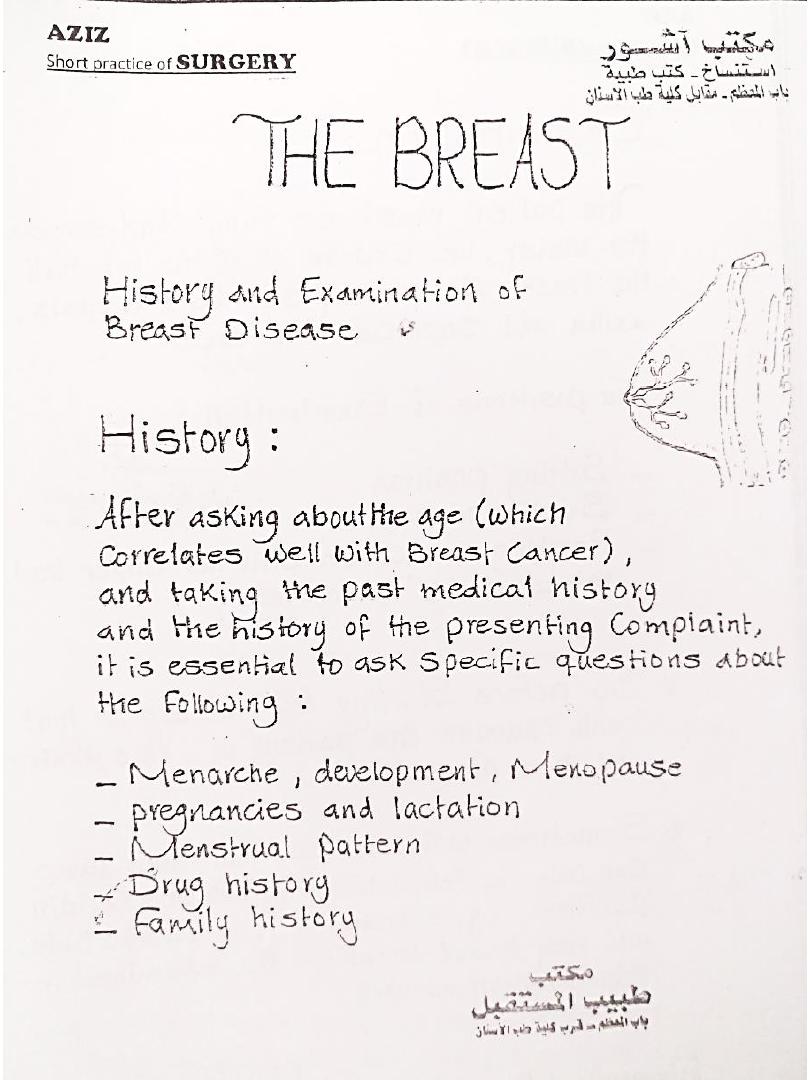 AZIZ
Short practice of SURGERY
مكتب آشور
استنساخ - كتب طبية
باب المعظم - مقابل كلية طب الاسنان
THE BREAST
History and Examination of
Breast Disease
History :
After asking about the age (which
Correlates well with Breast Cancer),
and taking the past medical history
and the history of the presenting Complaint,
it is essential to ask Specific questions about
the Following :
- Menarche, development, Menopause
- pregnancies and lactation
- Menstrual pattern
- Drug history
- Family history
مكتب
طبيب المستقبل
باب المعظم - قرب كلية طب الأسنان